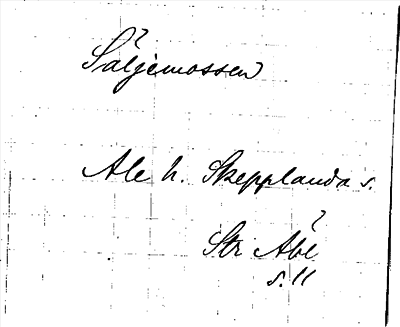 Säljemossen
Ale h. Skepplanda s.
Str Åbe
s. 11